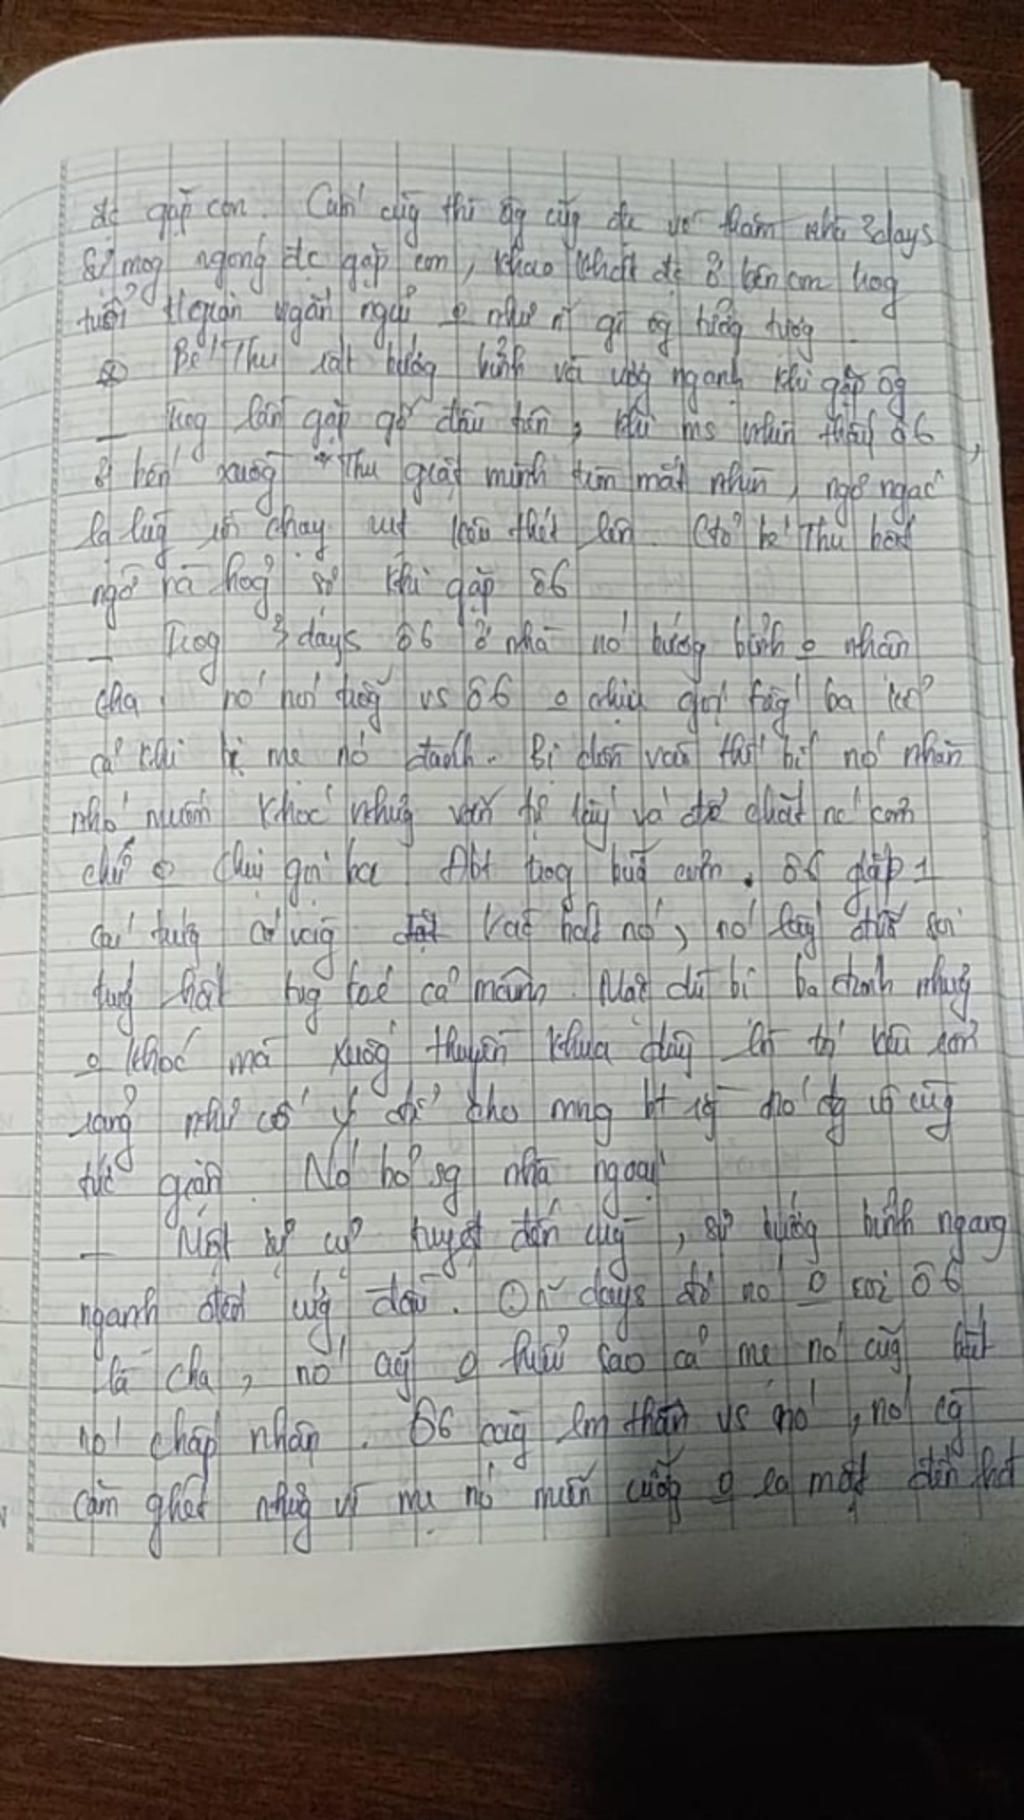 đc gặp con. Cuối cùg thì ôg cũg đc về thăm nhà 3 days
ôg mog ngóng đc gặp con, khao khát đc ở bên con trog
thời gian ngắn ngủi o như n~ gì ôg tưởg tượg
Bé Thu rất bướng bỉnh và ươg ngạnh khi gặp ôg
_ Trog lần gặp gỡ đầu tiên, khi ms nhìn thấy ô6
ở bến xuồg Thu giật mình tròn mắt nhìn, ngơ ngác
lạ lùg rồi chạy vụt kêu thét lên. Ctỏ bé Thu bất
ngờ và hoảg sợ khi gặp ô6
_ Trog 3 days ô6 ở nhà nó bướg bỉnh o nhận
cha. nó nói trổg vs ô6 o chịu gọi tiếg ba kể
cả khi bị mẹ nó đánh. Bị dồn vào thế bí nó nhăn
nhó muốn khóc nhưg vẫn tự lấy vá để chắt nc cơm
chứ o chịu gọi ba. Đbt trog bữa cơm, ô6 gắp 1
cái trứg cá vàg vào bát nó, nó lấy đũa soi
trứg hất tug toé cả mâm. Mặc dù bị ba đánh nhưg
o khóc mà xuốg thuyền khua dây lòi tói kêu rổn
rảng như cố ý để cho mng bt rg nó đg vô cùg
tức giận. Nó bỏ sg nhà ngoại
_ Một sự cự tuyệt đến cùg, sự bướg bỉnh ngang
ngạnh đến cứg đầu. n~ days đó nó o coi ô6
là cha, nó cũg o hiểu sao cả mẹ nó cũg bắt
nó chấp nhận. Ô6 càg lm thân vs nó, nó cg
căm ghét nhưg vì mẹ nó miễn cưỡg o ra mặt đến lúc